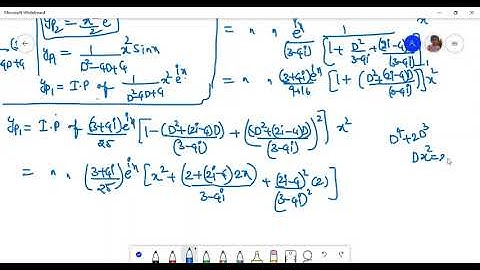 Microsoft Whiteboard
y_{P2} = x²/2 e
y_{P1} = 1/(D²-4D+4) x² Sinx
y_{P1} = I.P of 1/(D²-4D+4) x² e^{ix}
= " " e^{ix}/(3-4i) 1/[1+ D²/(3-4i) + (2i-4)D/(3-4i)] x²
= " " (3+4i)e^{ix}/(9+16) [1+ (D²+(2i-4)D)/(3-4i)]^{-1} x²
y_{P1} = I.P of (3+4i)e^{ix}/25 [1- (D²+(2i-4)D)/(3-4i) + ((D²+(2i-4)D)/(3-4i))²] x²
= " " (3+4i)/25 e^{ix} [x² + (2+(2i-4)2x)/(3-4i) + (2i-4)²/(3-4i)² (2)]
D⁴+2D³
Dx²=2